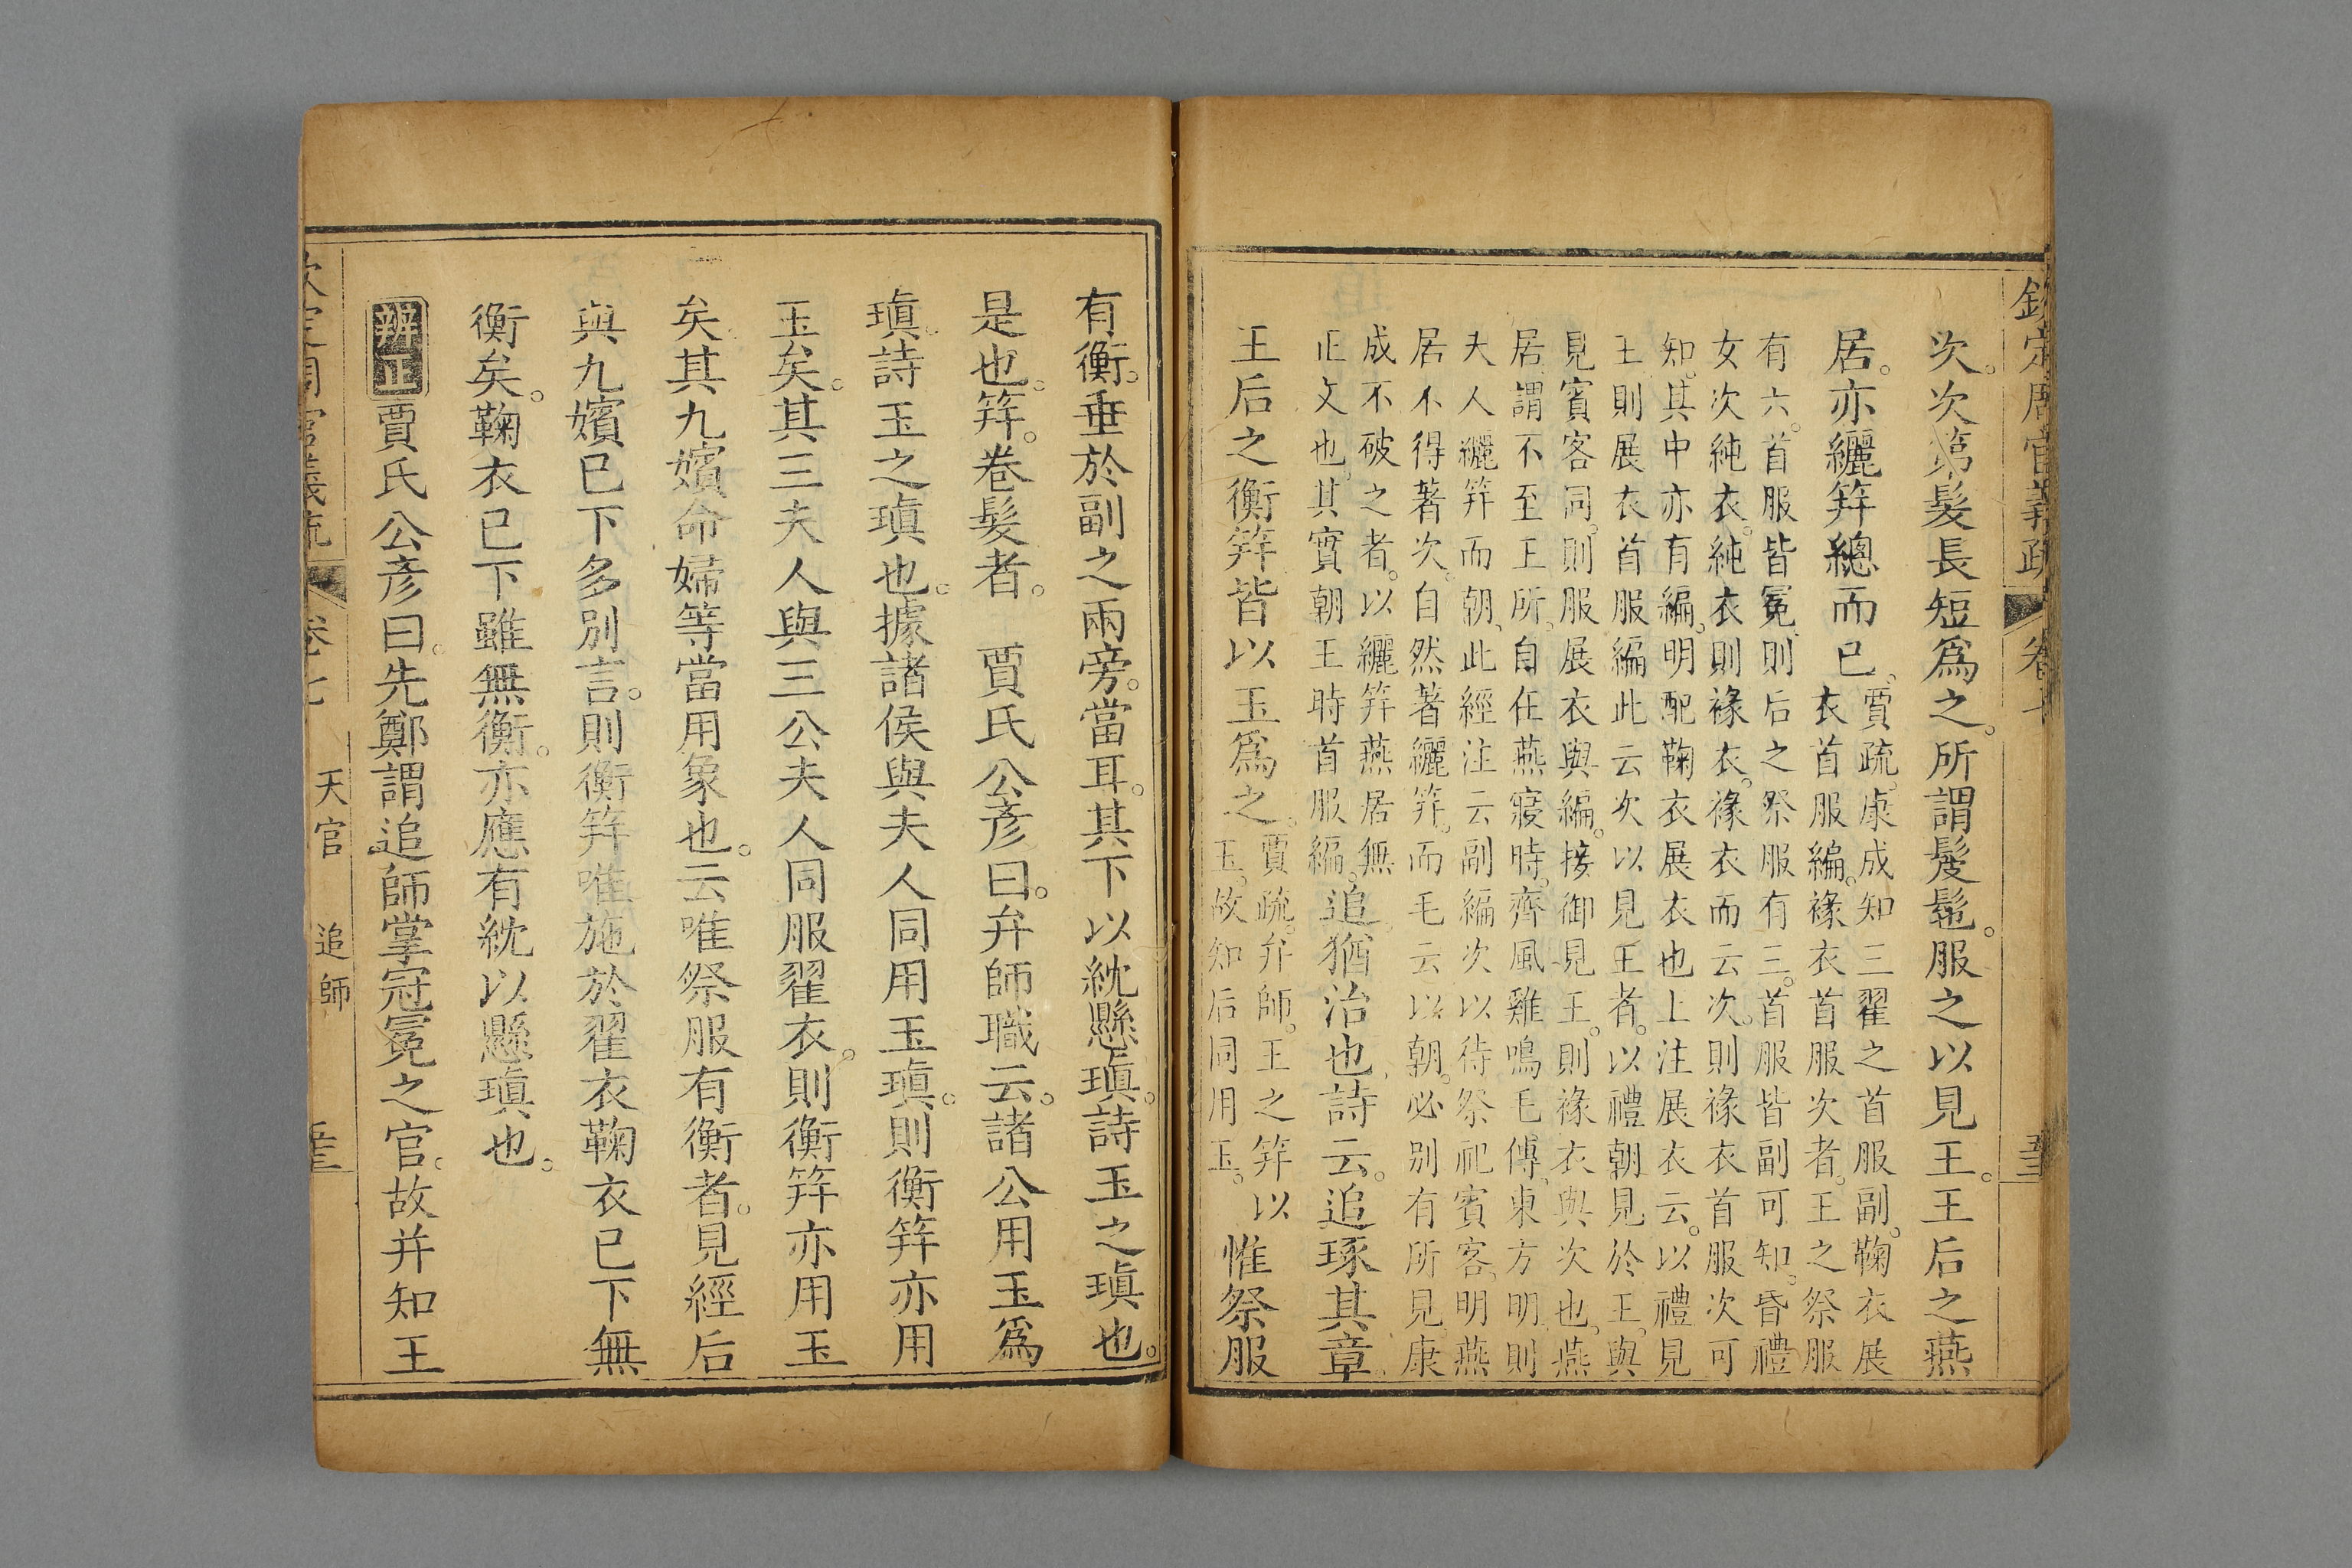 欽定周官義疏 卷七
次。次第髮長短爲之。所謂髲髢。服之以見王。王后之燕
居。亦纚筓總而已。
賈疏。康成知三翟之首服副。鞠衣展
衣首服編。褖衣首服次者。王之祭服
有六。首服皆冕。則后之祭服有三。首服皆副可知。昏禮
女次純衣。純衣則褖衣。褖衣而云次。則褖衣首服次可
知。其中亦有編。明配鞠衣展衣也上注展衣云。以禮見
王則展衣首服編此云次以見王者。以禮朝見於王。與
見賓客同。則服展衣與編。接御見王。則褖衣與次也。燕
居。謂不至王所。自在燕寢時。齊風雞鳴毛傳。東方明則
夫人纚筓而朝。此經注云副編次以待祭祀賓客。明燕
居不得著次。自然著纚筓。而毛云以朝。必別有所見。康
成不破之者。以纚筓燕居無
正文也。其實朝王時首服編。
追猶治也詩云。追琢其章
王后之衡筓皆以玉爲之。
賈疏。弁師。王之筓以
玉。故知后同用玉。
惟祭服
有衡。垂於副之兩旁。當耳。其下以紞懸瑱。詩玉之瑱也。
是也。筓。卷髮者。 賈氏公彥曰。弁師職云。諸公用玉爲
瑱。詩玉之瑱也。據諸侯與夫人同用玉瑱。則衡筓亦用
玉矣。其三夫人與三公夫人同服翟衣。則衡筓亦用玉
矣其九嬪命婦等當用象也。云唯祭服有衡者。見經后
與九嬪已下多別言。則衡筓唯施於翟衣鞠衣已下無
衡矣。鞠衣已下雖無衡。亦應有紞以懸瑱也。
辨正 賈氏公彥曰。先鄭謂追師掌冠冕之官。故并知王
欽定周官義疏 卷七 天官 追師